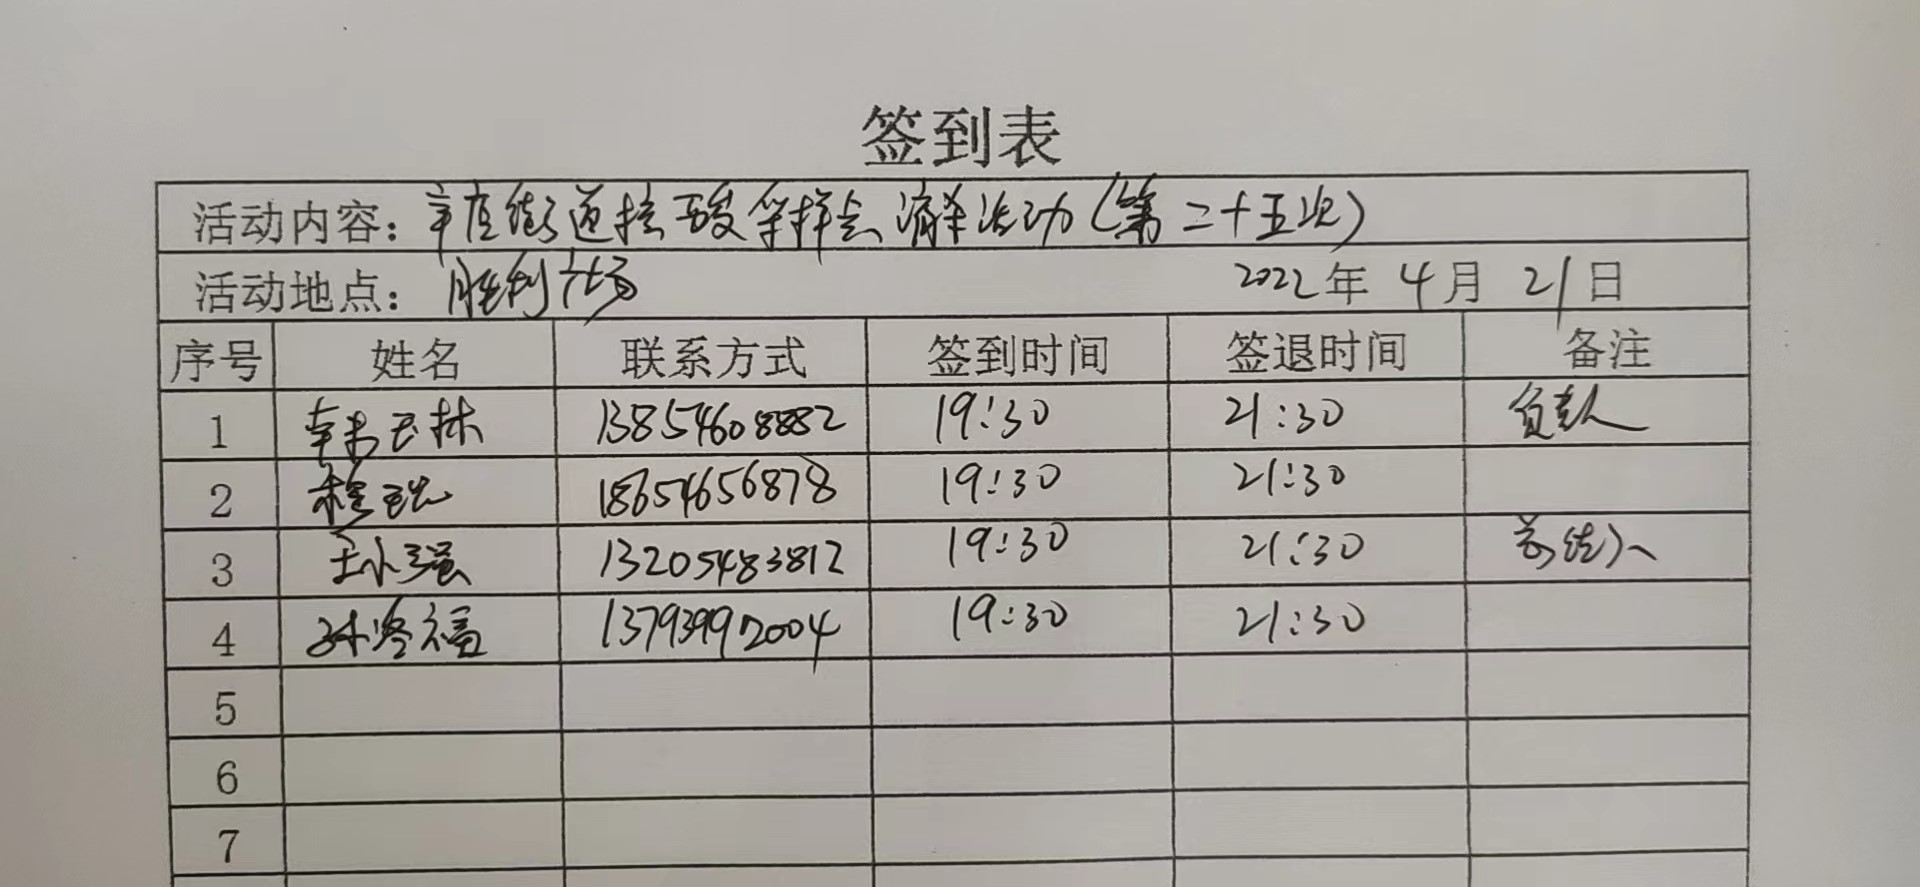 签到表
活动内容：辛店街道核酸采样点消杀活动（第二十五次）
活动地点：胜利广场 2022年4月21日
序号 姓名 联系方式 签到时间 签退时间 备注
1 韩玉林 13854608882 19:30 21:30 负责人
2 18654656878 19:30 21:30
3 王小强 13205483812 19:30 21:30
4 孙冬福 13793992004 19:30 21:30
5
6
7